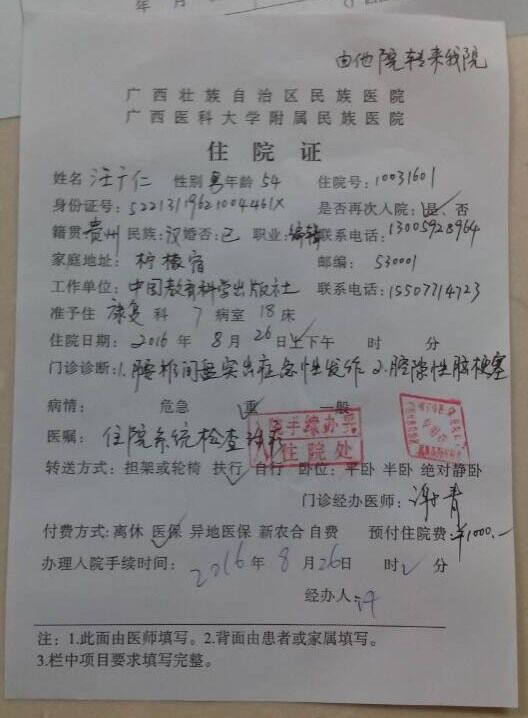 由他院转来我院
广西壮族自治区民族医院
广西医科大学附属民族医院
住院证
姓名 汪广仁 性别 男 年龄 54 住院号：10031601
身份证号：52213119621004461X 是否再次入院：是、否
籍贯：贵州 民族：汉 婚否：已 职业：编辑 联系电话：13005928964
家庭地址：柠檬宿 邮编：530001
工作单位：中国教育科学出版社 联系电话：15507714723
准予住 康复 科 7 病室 18 床
住院日期：2016 年 8 月 26 日上下午 时 分
门诊诊断：1.腰椎间盘突出症急性发作 2.腔隙性脑梗塞
病情： 危急 重 一般
医嘱：住院系统检查治疗
入院手续办兴
住院处
转送方式：担架或轮椅 扶行 自行 卧位：平卧 半卧 绝对静卧
门诊经办医师：谢青
付费方式：离休 医保 异地医保 新农合 自费 预付住院费：¥1000.—
办理入院手续时间：2016 年 8 月 26 日 时 分
经办人：
注：1.此面由医师填写。2.背面由患者或家属填写。
3.栏中项目要求填写完整。